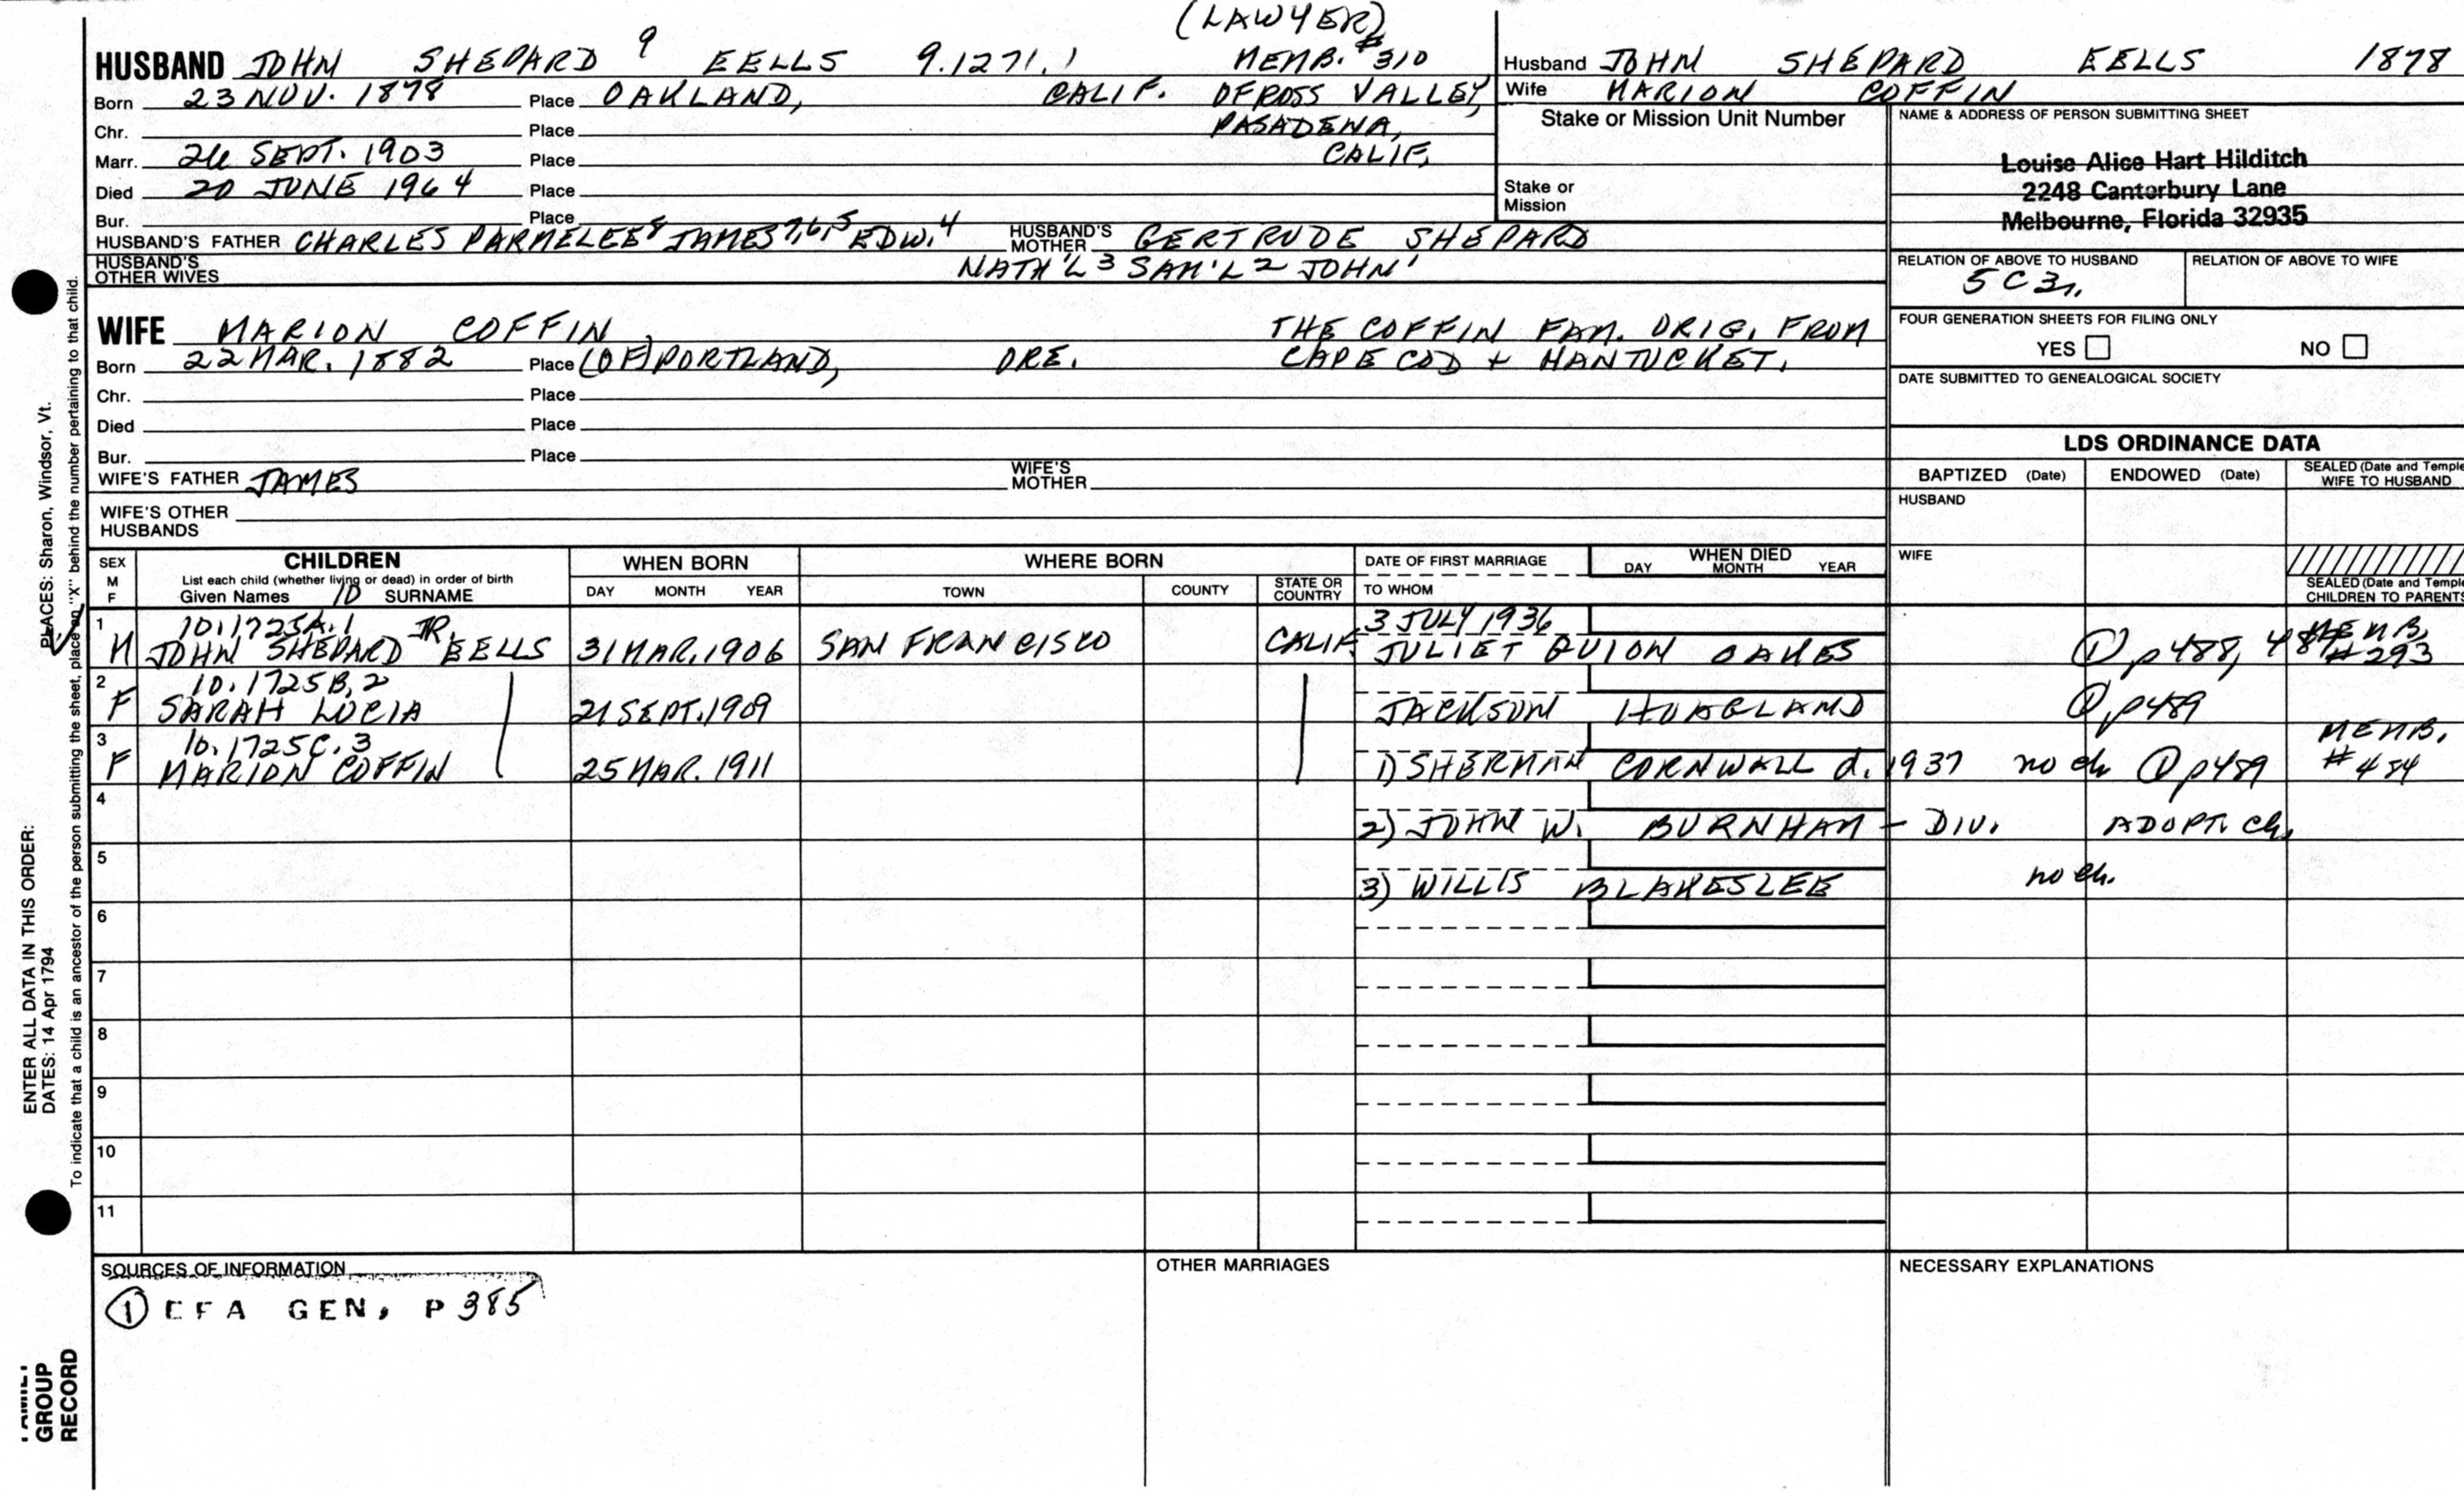 (LAWYER)
HUSBAND JOHN SHEPARD 9 EELLS 9.1271.1 MEMB. #310
Born 23 NOV. 1878 Place OAKLAND, CALIF. OF ROSS VALLEY,
Chr. Place PASADENA,
Marr. Place CALIF.
SEPT. 1903
Died 20 JUNE 1964 Place
Bur. Place
HUSBAND'S FATHER CHARLES PARMELEE 8 JAMES 7,6,5 EDW. 4 HUSBAND'S MOTHER GERTRUDE SHEPARD
HUSBAND'S OTHER WIVES NATH'L 3 SAM'L 2 JOHN 1
Husband JOHN SHEPARD EELLS 1878
Wife MARION COFFIN
Stake or Mission Unit Number
Stake or
Mission
NAME & ADDRESS OF PERSON SUBMITTING SHEET
Louise Alice Hart Hilditch
2248 Canterbury Lane
Melbourne, Florida 32935
RELATION OF ABOVE TO HUSBAND RELATION OF ABOVE TO WIFE
5 C 3r.
FOUR GENERATION SHEETS FOR FILING ONLY
YES NO
DATE SUBMITTED TO GENEALOGICAL SOCIETY
WIFE MARION COFFIN THE COFFIN FAM. ORIG. FROM
Born 22 MAR. 1882 Place (OF) PORTLAND, ORE. CAPE COD + NANTUCKET.
Chr. Place
Died Place
Bur. Place
WIFE'S FATHER JAMES WIFE'S MOTHER
WIFE'S OTHER
HUSBANDS
LDS ORDINANCE DATA
BAPTIZED (Date) ENDOWED (Date) SEALED (Date and Temple
WIFE TO HUSBAND
HUSBAND
WIFE
SEALED (Date and Temple
CHILDREN TO PARENTS
SEX
M
F
CHILDREN
List each child (whether living or dead) in order of birth
Given Names ID SURNAME
WHEN BORN
DAY MONTH YEAR
WHERE BORN
TOWN COUNTY STATE OR COUNTRY
DATE OF FIRST MARRIAGE
TO WHOM
WHEN DIED
DAY MONTH YEAR
1 10.1725A.1 JR. 3 JULY 1936 MEMB.
M JOHN SHEPARD EELLS 31 MAR. 1906 SAN FRANCISCO CALIF. JULIET QUION OAKES 1 p488, #293
2 10.1725B.2
F SARAH LUCIA 21 SEPT. 1909 JACKSON 1 p489
3 10.1725C.3 MEMB.
F MARION COFFIN 25 MAR. 1911 1) SHERMAN CORNWALL d. 1937 no ch 1 p489 #484
4
2) JOHN W. BURNHAM - DIV. ADOPT. ch.
5
3) WILLIS BLAKESLEE no ch.
6
7
8
9
10
11
SOURCES OF INFORMATION
1 EFA GEN, P 385
OTHER MARRIAGES
NECESSARY EXPLANATIONS
ENTER ALL DATA IN THIS ORDER:
DATES: 14 Apr 1794
PLACES: Sharon, Windsor, Vt.
To indicate that a child is an ancestor of the person submitting the sheet, place an "X" behind the number pertaining to that child.
GROUP
RECORD